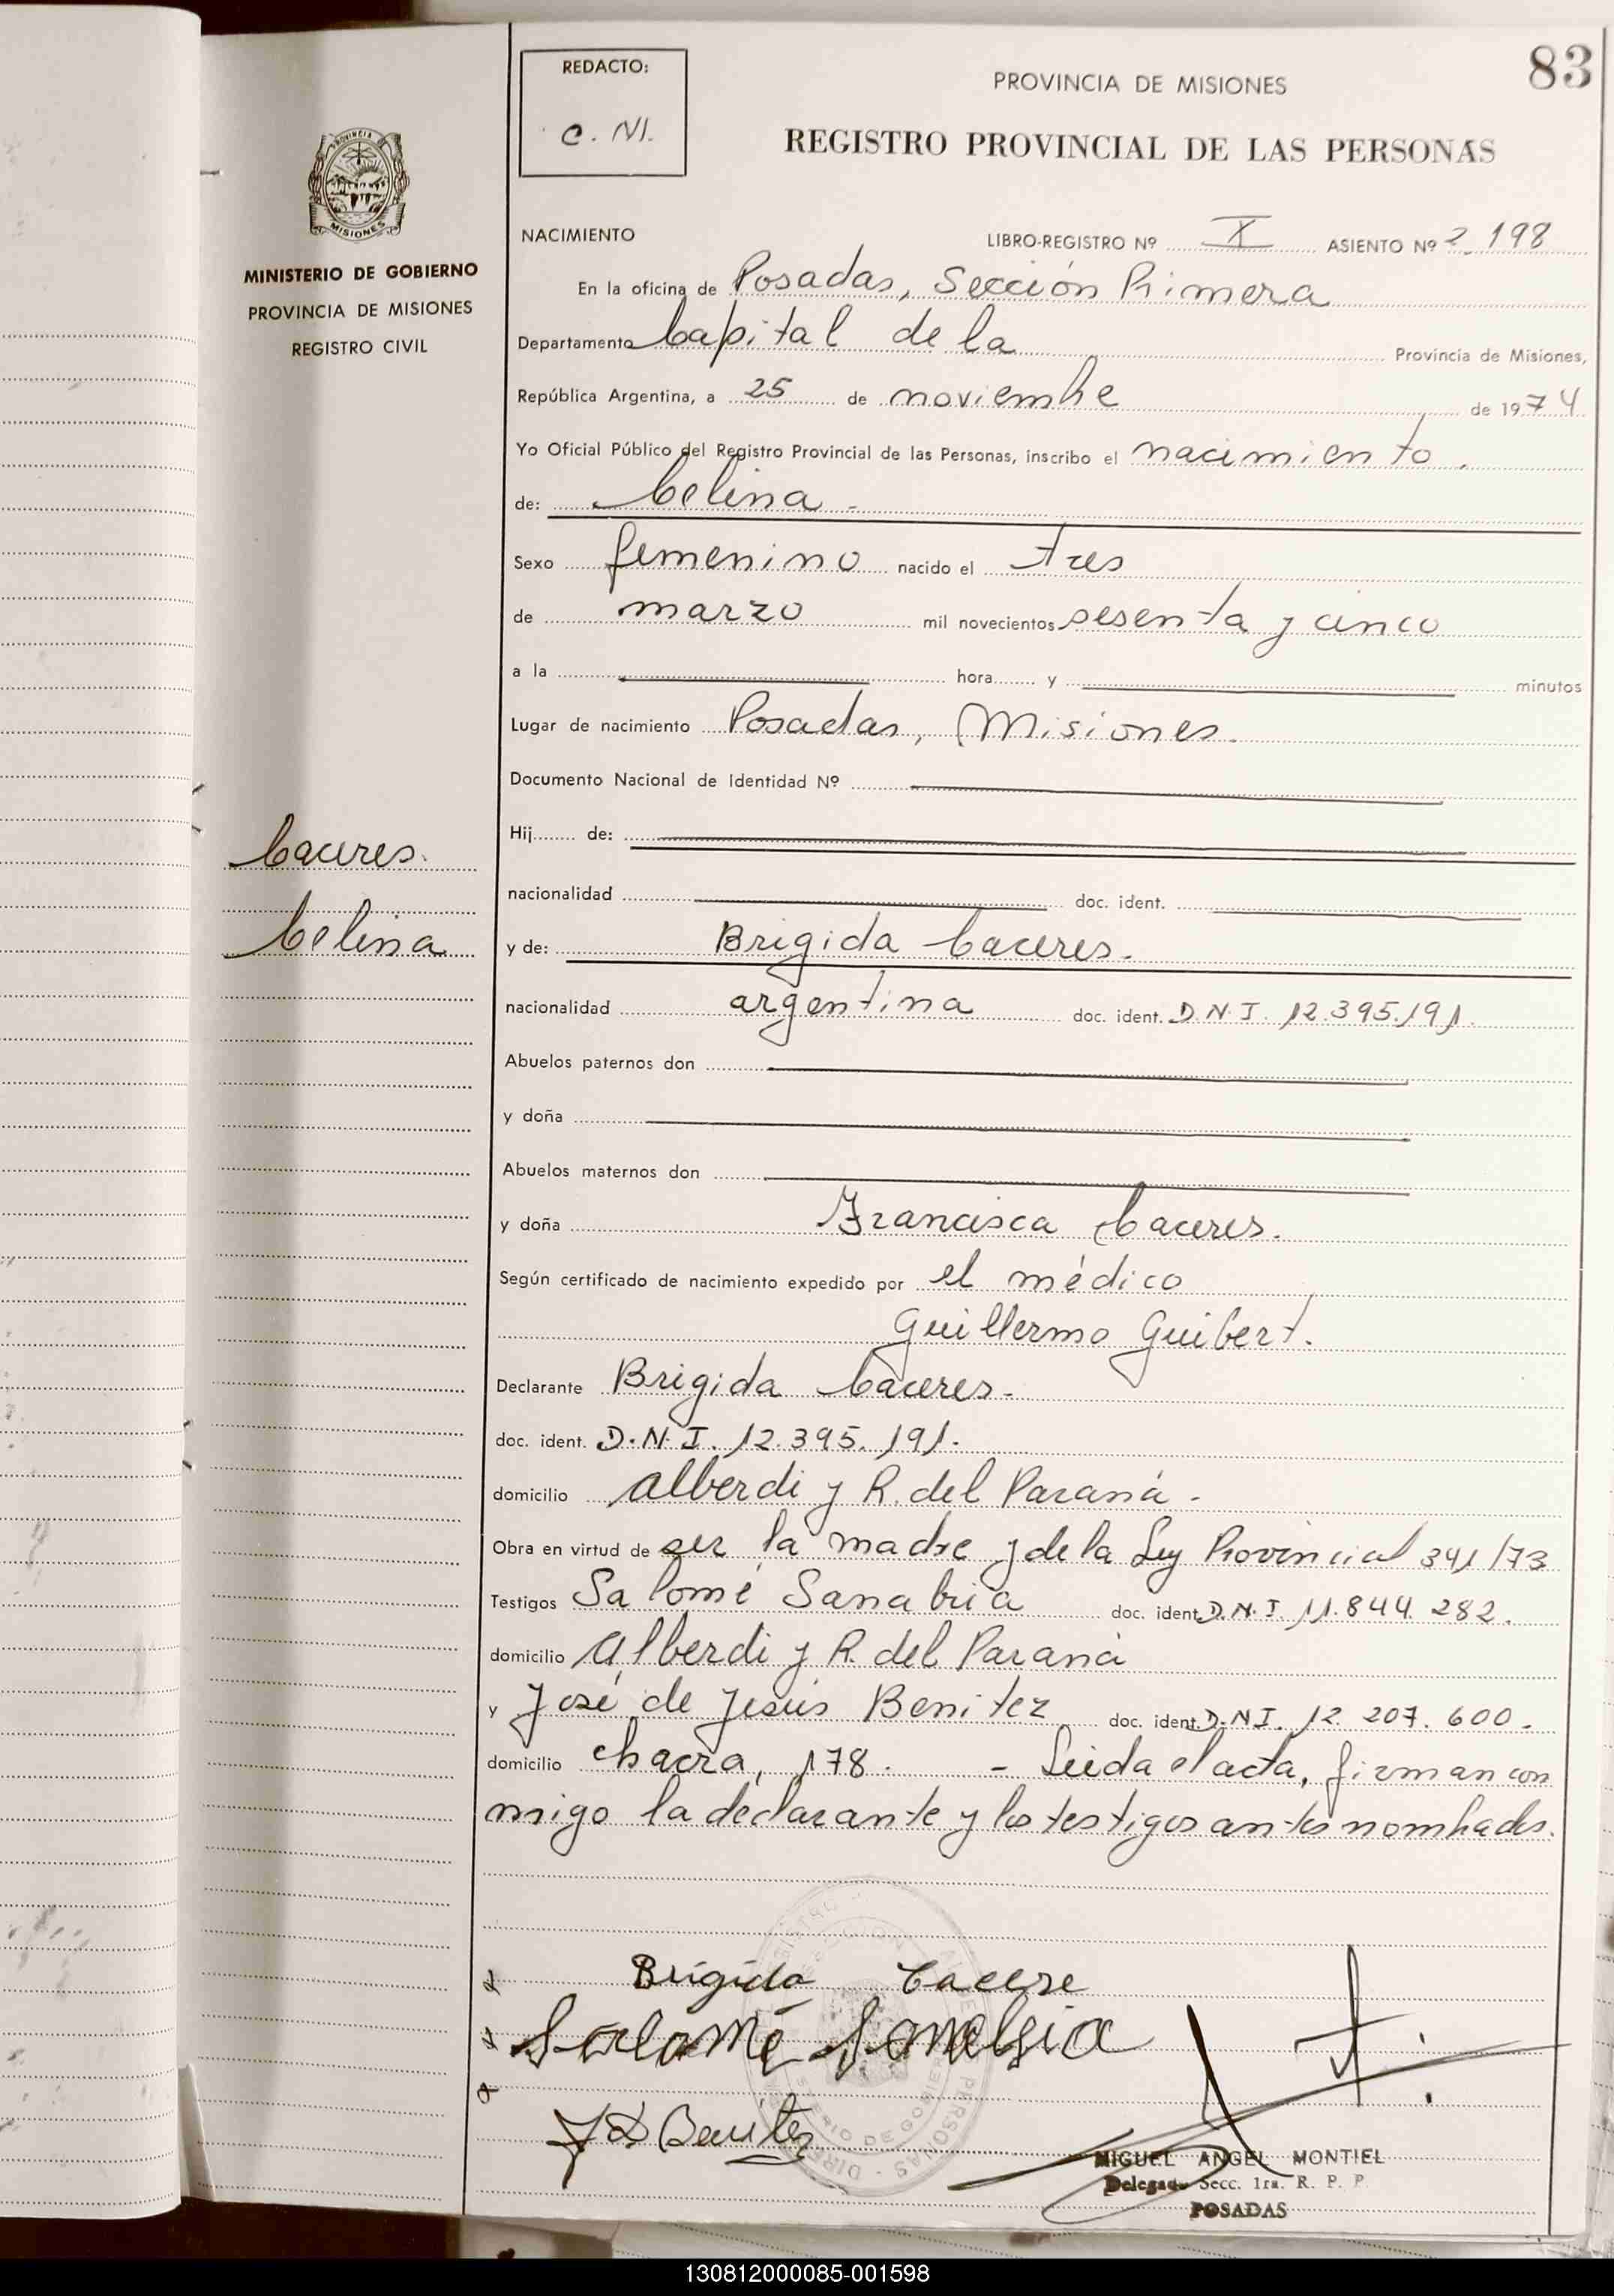 83
REDACTO:
C. M.
PROVINCIA DE MISIONES
REGISTRO PROVINCIAL DE LAS PERSONAS
MISIONES
MINISTERIO DE GOBIERNO
PROVINCIA DE MISIONES
REGISTRO CIVIL
NACIMIENTO LIBRO-REGISTRO Nº X ASIENTO Nº 2198
En la oficina de Posadas, Sección Primera
Departamento Capital de la Provincia de Misiones,
República Argentina, a 25 de noviembre de 1974
Yo Oficial Público del Registro Provincial de las Personas, inscribo el nacimiento.
de: Celina -
Sexo femenino nacido el tres
de marzo mil novecientos sesenta y cinco
a la hora y minutos
Lugar de nacimiento Posadas, Misiones.
Documento Nacional de Identidad Nº
Hij de:
Caceres.
nacionalidad doc. ident.
Celina
y de: Brigida Caceres.
nacionalidad argentina doc. ident. D.N.I. 12.395.191.
Abuelos paternos don
y doña
Abuelos maternos don
y doña Francisca Caceres.
Según certificado de nacimiento expedido por el médico
Guillermo Guibert.
Declarante Brigida Caceres-
doc. ident. D.N.I. 12.395.191.
domicilio Alberdi y R. del Paraná -
Obra en virtud de ser la madre y de la Ley Provincial 341/73
Testigos Salomé Sanabria doc. ident. D.N.I. 11.844.282.
domicilio Alberdi y R. del Paraná
y José de Jesús Benitez doc. ident. D.N.I. 12.207.600.
domicilio chacra, 178. - Leida el acta, firman con
migo la declarante y los testigos antes nombrados.
Brigida Cacere
Salomé Sanabria
J D Benítez
MIGUEL ANGEL MONTIEL
Delegado Secc. 1ra. R. P. P.
POSADAS
130812000085-001598